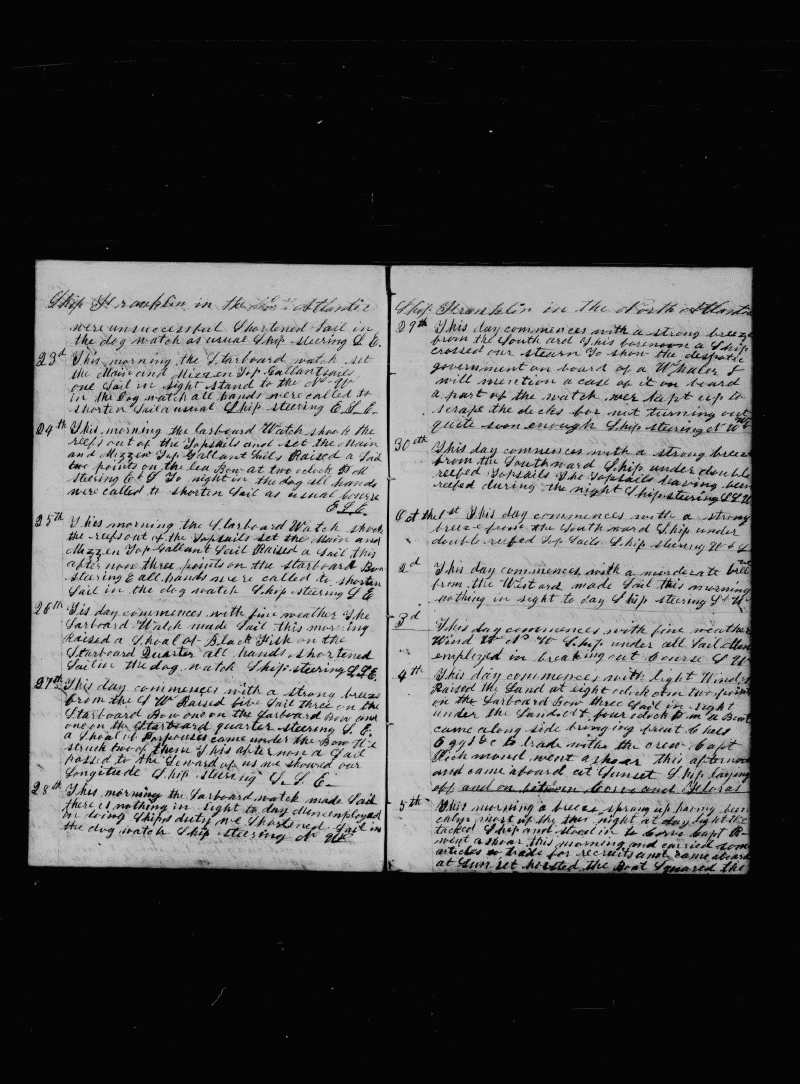 Ship Franklin in the Atlantic
were unsuccessful Shortened Sail in
the dog watch as usual Ship steering S. E.
23d This morning the Starboard watch set
the Main and Mizzen Top Gallantsails
one Sail in sight stand to the N. W
in the Dog watch all hands were called to
shorten Sail a usual Ship steering E. S. E.
24th This morning the Larboard Watch shook the
reefs out of the Topsails and set the Main
and Mizzen Top Gallant Sails Raised a Sail
two points on the lea Bow at two oclock P M
steering E S To night in the dog all hands
were called to shorten Sail as usual course
E. S. E.
25th This morning the Starboard Watch shook
the reefs out of the Topsails set the Main and
Mizzen Top Gallant Sail Raised a Sail this
afternoon three points on the starboard Bow
stearing E all hands were called to shorten
Sail in the dog watch Ship steering S E
26th This day commences with fine weather The
Larboard Watch made Sail this morning
Raised a Shoal of Black Fish on the
Starboard Quarter all hands shortened
Sail in the dog watch Ship steering S. S. E.
27th This day commences with a strong breez
from the S W Raised five Sail three on the
Starboard Bow one on the Larboard Bow and
one on the Starboard quarter steering S. E.
a Shoal of Porpouses came under the Bow We
struck two of them This afternoon a Sail
passed to the Leward of us we showed our
Longitude Ship steering S. S. E.
28th This morning the Larboard watch made Sail
there is nothing in sight to day Men employed
on doing Ships duty we Shortened Sail in
the dog watch Ship steering N W
Ship Franklin in the North Atlantic
29th This day commences with a strong breeze
from the South ard This forenoon a Ship
crossed our stearn To show the despotic
government on board of a Whaler I
will mention a case of it on board
a part of the watch wer kept up to
scrape the decks for not turning out
quite soon enough Ship steering N W
30th This day commences with a strong breeze
from the Southward Ship under double
reefed Topsails The Topsails having been
reefed during the night Ship steering
Oct the 1st This day commences with a strong
breeze from the Southward Ship under
double reefed Top Sails Ship steering
2d This day commences with a morderate breeze
from the West ard made Sail this morning
nothing in sight to day Ship steering
3d This day commences with fine weather
Wind W N W Ship under all Sail Men
employed in breaking out Course
4th This day commences with light Winds
Raised the Land at eight oclock A M two points
on the Larboard Bow three Sail in sight
under the Land at four oclock P. m a Boat
came along side bringing fruit Chees
Eggs &c to trade with the crew Capt
Richmond went a shear this afternoon
and came aboard at Sunset Ship laying
off and on between Corvo and Floras
5th This morning a breeze sprang up having been
calm most of the night at day light We
tacked Ship and stood in to Corvo Capt R
went a shoar this morning and carried some
articles to trade for recruits and came aboard
at Sun set hoisted the Boat Squared the